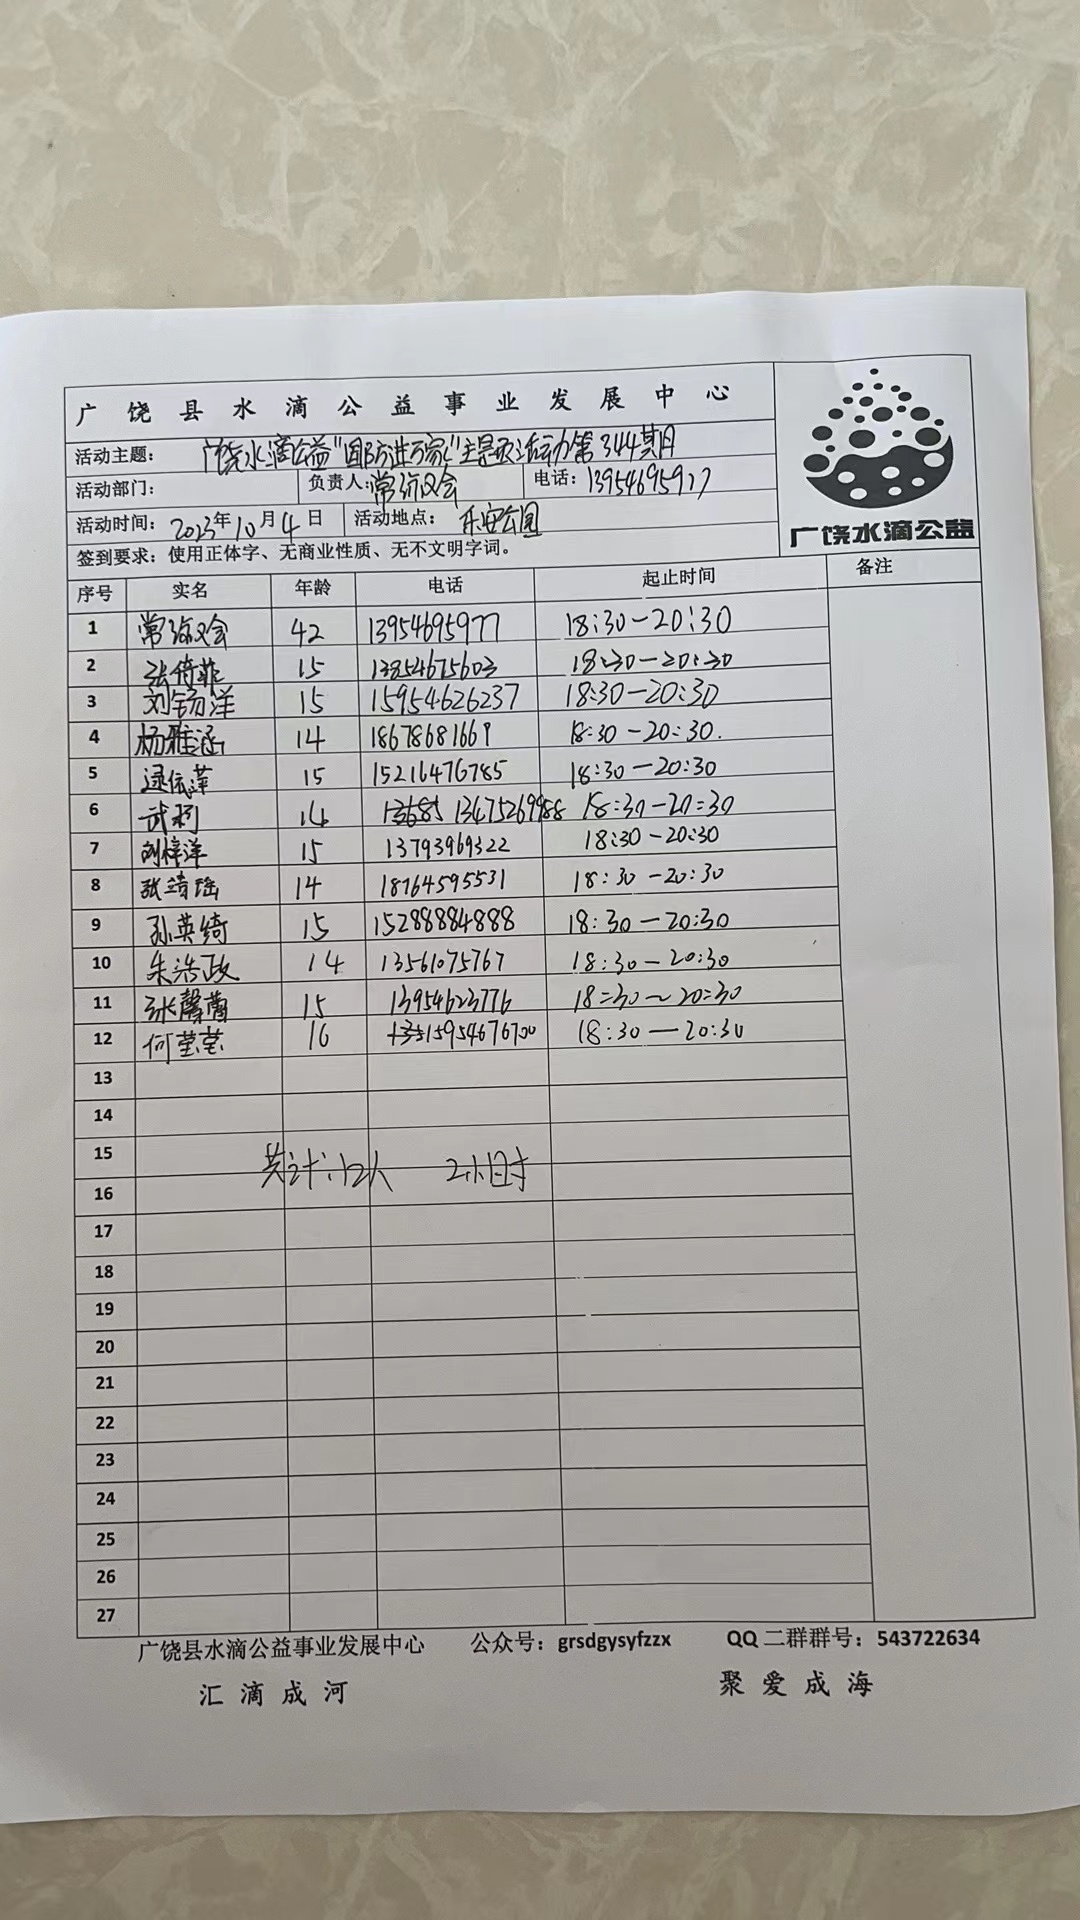 广饶县水滴公益事业发展中心
活动主题：广饶水滴公益"国防进万家"主题活动第344期
活动部门： 负责人：常 会 电话：13954695977
活动时间：2023年10月4日 活动地点：乐安公园
签到要求：使用正体字、无商业性质、无不文明字词。
广饶水滴公益
序号 实名 年龄 电话 起止时间 备注
1 常 会 42 13954695977 18:30-20:30
2 张倚菲 15 13854675603 18:30-20:30
3 刘钖洋 15 15954626237 18:30-20:30
4 杨雅涵 14 18678681669 18:30-20:30.
5 逯依萍 15 15216476785 18:30-20:30
6 武 14 13685 13475269988 18:30-20:30
7 刘梓洋 15 13793969322 18:30-20:30
8 张靖瑶 14 18764595531 18:30-20:30
9 孙英绮 15 15288884888 18:30-20:30
10 朱浩政 14 13561075767 18:30-20:30
11 张馨蕾 15 13954623776 18:30~20:30
12 何莹莹 16 135 15954676700 18:30-20:30
13
14
15
共计：12人 2小时
16
17
18
19
20
21
22
23
24
25
26
27
广饶县水滴公益事业发展中心 公众号：grsdgysyfzzx QQ二群群号：543722634
汇滴成河 聚爱成海